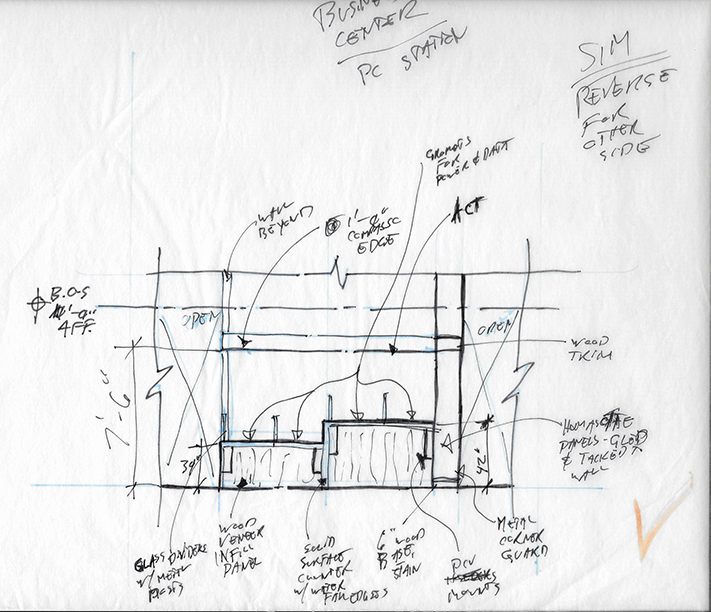 BUSINESS
CENTER
PC STATION
SIM
REVERSE
FOR
OTHER
SIDE
GROMETS
FOR
POWER & DATA
WALL
BEYOND
@ 1'-0"
COMPASSO
EDGE
ACT
B.O.S
AFF.
OPEN
OPEN
WOOD
TRIM
7'-6"
30"
42"
HOMASOTE
PANELS - GLUED
& TACKED TO
WALL
GLASS DIVIDERS
W/ METAL
POSTS
WOOD
VENEER
INFILL
PANEL
SOLID
SURFACE
COUNTER
W/ WATER
FALL EDGES
6" WOOD
BASE,
STAIN
PCU
MOUNTS
METAL
CORNER
GUARD